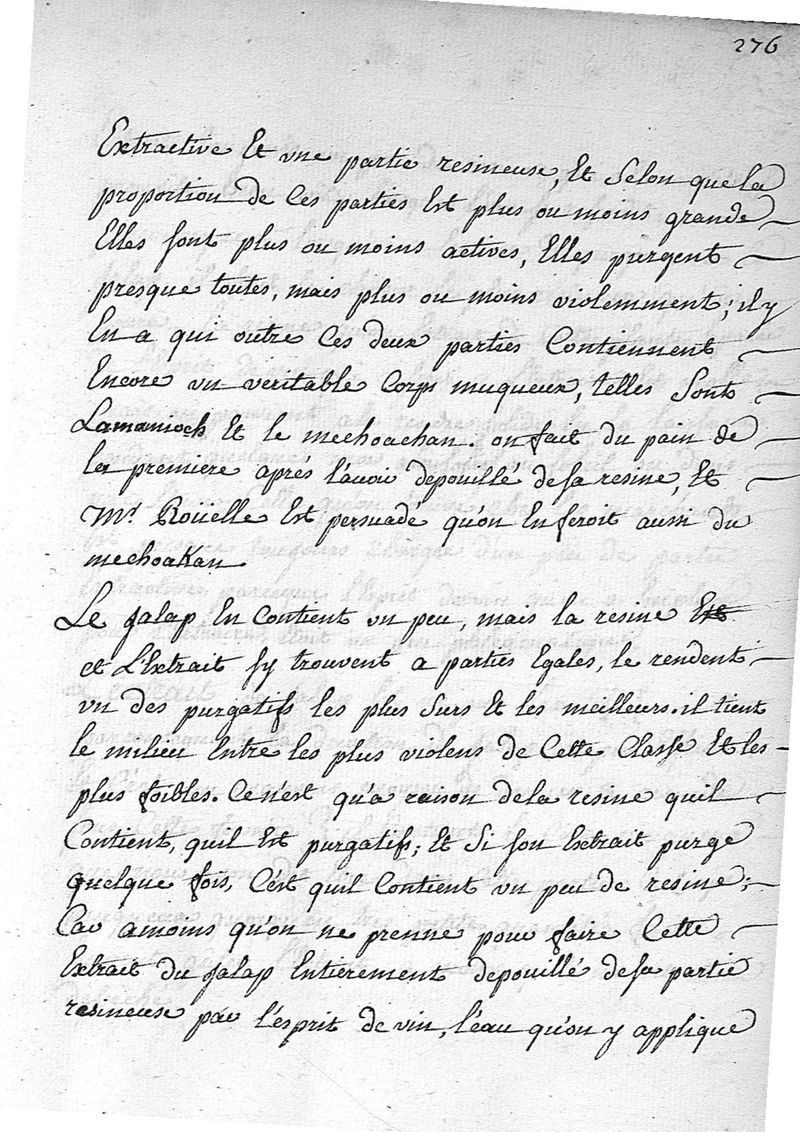 276
Extractive Et vne partie resineuse, Et Selon que la
proportion de Ces parties Est plus ou moins grande
Elles sont plus ou moins actives, Elles purgent
presque toutes, mais plus ou moins violemment; il y
En a qui outre Ces deux parties Contiennent
Encore vn veritable Corps muqueux, telles Sont
Lamanioch Et le mechoachan. on fait du pain de
la premiere aprés l'avoir depouillé de sa resine, Et
Mr. Roüelle Est persuadé qu'on En feroit aussi du
mechoakan.
Le Jalap En Contient vn peu, mais la resine Est
et L'Extrait s'y trouvent a parties Egales, le rendent
vn des purgatifs les plus Surs Et les meilleurs. il tient
le milieu Entre les plus violens de Cette Classe Et les
plus foibles. Ce n'est qu'a raison de la resine quil
Contient, quil Est purgatif; Et Si son Extrait purge
quelque fois, C'est quil Contient vn peu de resine;
Car amoins qu'on ne prenne pour faire Cette
Extrait du Jalap Entierement depouillé de sa partie
resineuse par l'esprit de vin, l'eau qu'on y applique